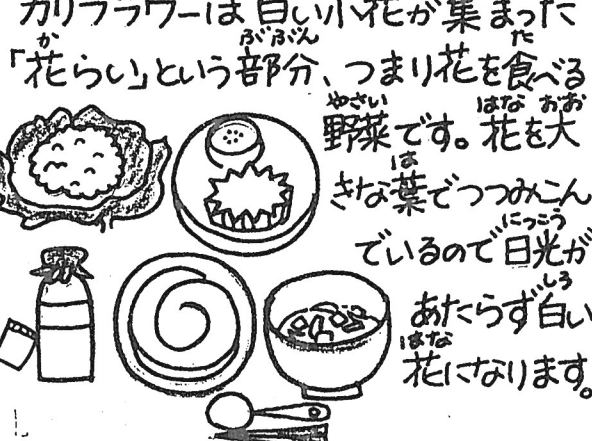 カリフラワーは白い小花が集まった
「花らい」という部分、つまり花を食べる
野菜です。花を大
きな葉でつつみこん
でいるので日光が
あたらず白い
花になります。